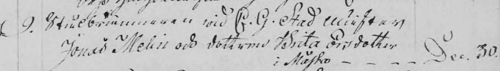 9. Stuckbrännaren vid C. G. Stad Mister
Jonas Melin och dottren Brita Ersdotter
i Muskö — — — — Dec. 30.